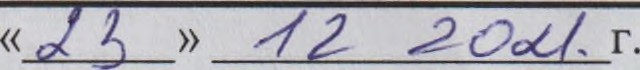 «23» 12 2021. г.